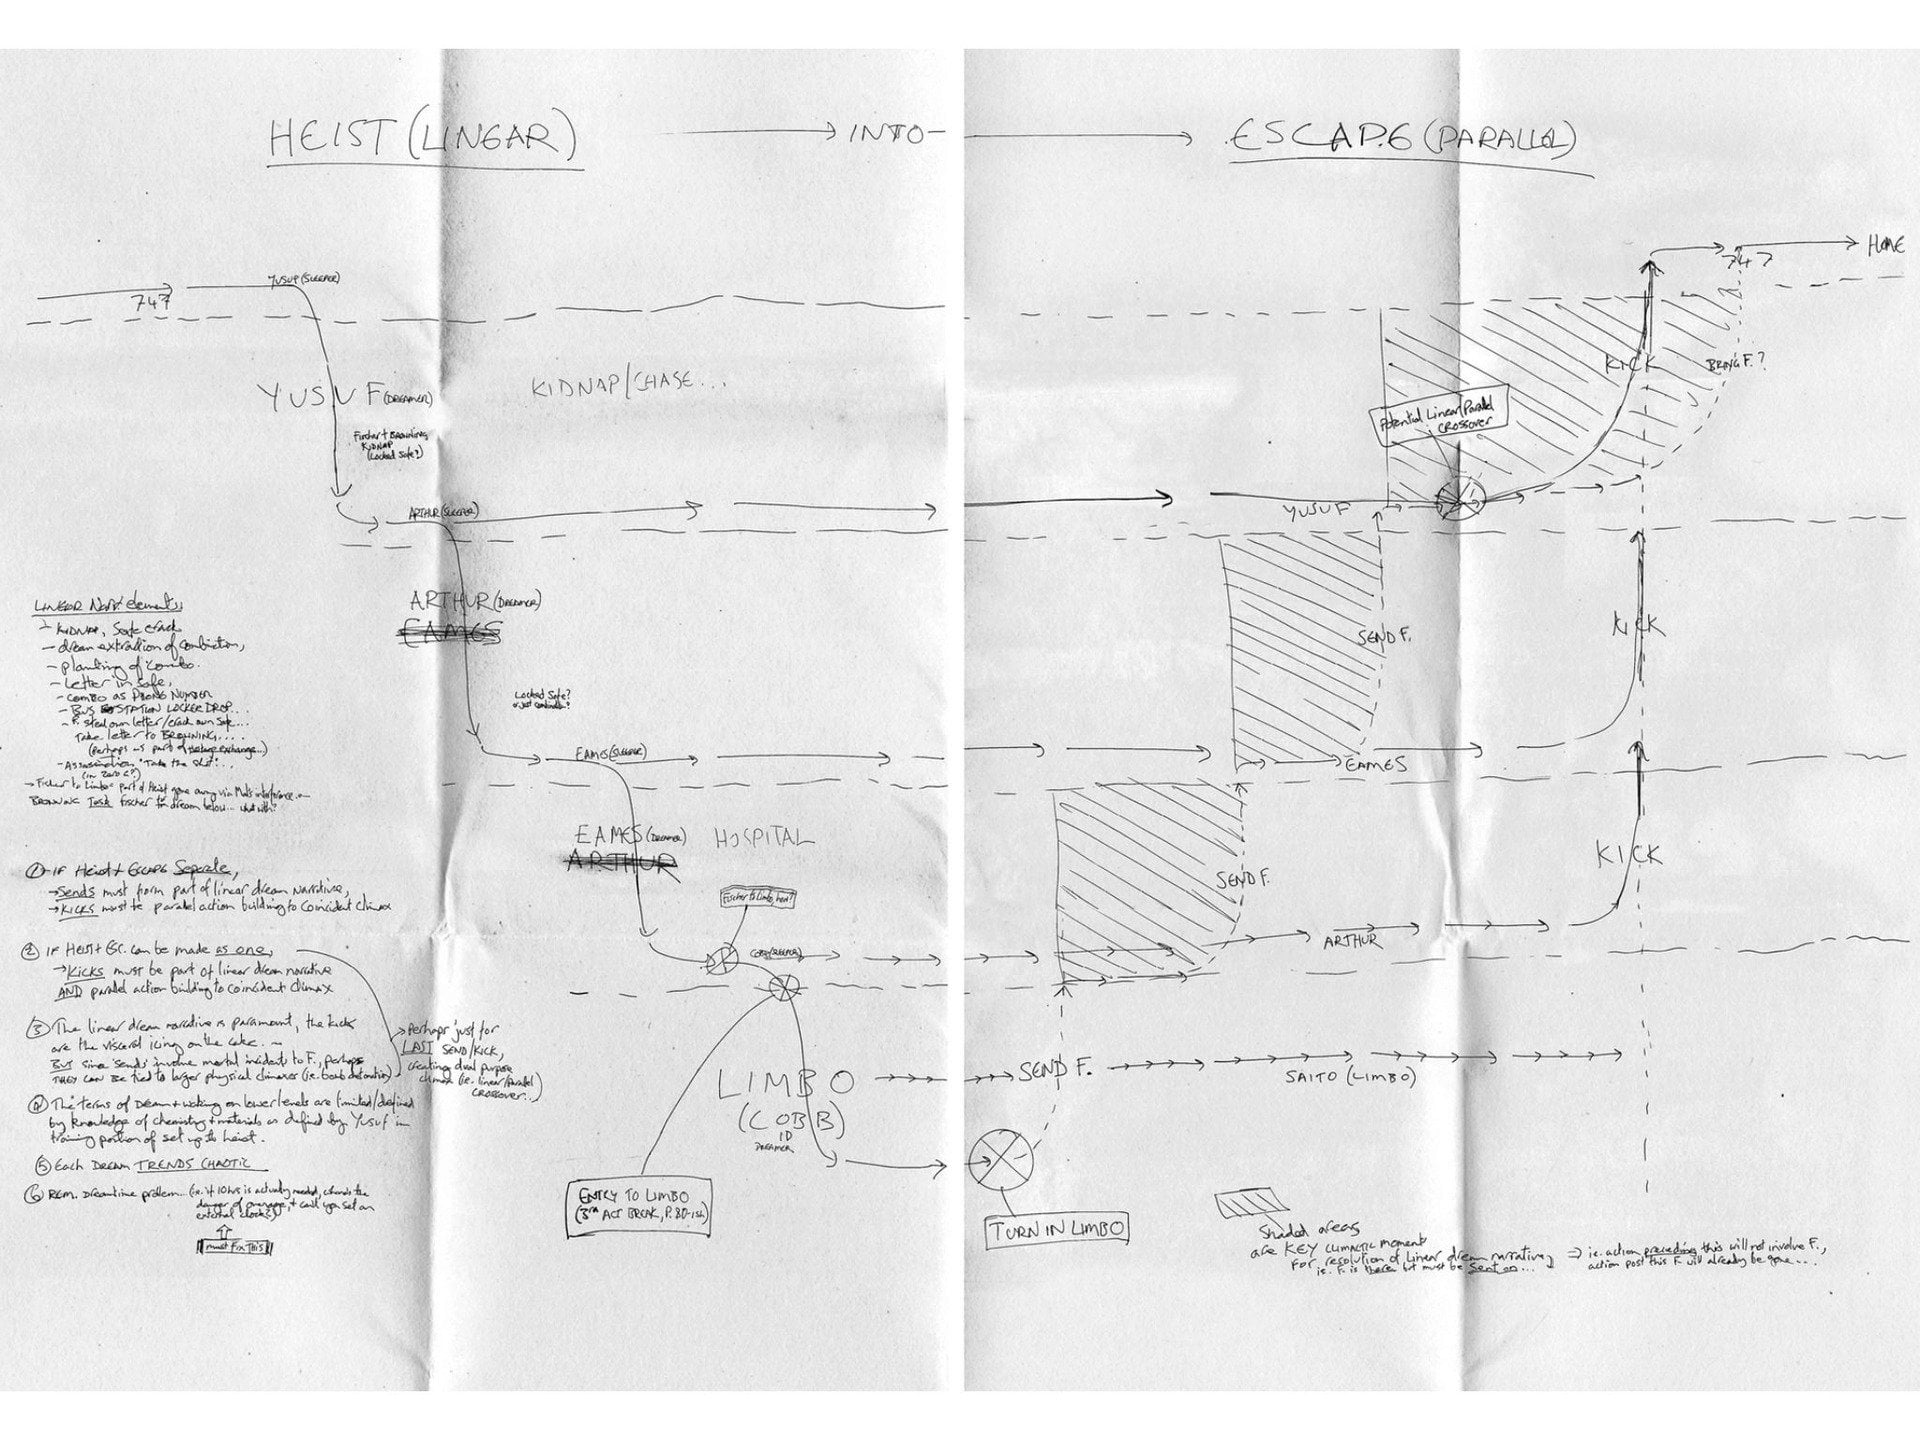 HEIST (LINEAR)
INTO
ESCAPE (PARALLEL)
747
YUSUF (SLEEPER)
YUSUF (DREAMER)
KIDNAP/CHASE...
Fischer + Browning
KIDNAP
(Locked Safe?)
ARTHUR (SLEEPER)
ARTHUR (DREAMER)
EAMES
Locked Safe?
or just combination?
EAMES (SLEEPER)
EAMES (DREAMER) HOSPITAL
ARTHUR
Fischer to Limbo, here?
COBB (SLEEPER)
LIMBO
(COBB)
DREAMER
ENTRY TO LIMBO
(3RD ACT BREAK, P. 80-ish)
LINEAR Narr. elements,
- KIDNAP, Safe crack
- dream extraction of combination,
- planting of combo.
- Letter in safe,
- COMBO as PHONE NUMBER
- BUS STATION LOCKER DROP...
- F. steal own letter/crack own safe...
Take letter to BROWNING....
(perhaps as part of exchange...)
- Assassination "Take the shot"...
(in zero G?)
→ Fischer to Limbo part of Heist gone awry via Mal's interference...
BROWNING Fischer dream below... what with?
① IF Heist + ESCAPE Separate,
→ Sends must form part of linear dream narrative,
→ KICKS must be parallel action building to coincident climax
② IF HEIST + ESC. can be made as one,
→ Kicks must be part of linear dream narrative
AND parallel action building to coincident climax
③ The linear dream narrative is paramount, the kicks
are the visceral icing on the cake. -
BUT since 'sends' involve mortal incident to F., perhaps
THEY can be tied to larger physical climaxes (i.e. bomb detonation)
→ perhaps just for
LAST SEND/KICK,
creating dual purpose
climax (i.e. linear/parallel
crossover..)
④ The terms of Dream + waking on lower levels are limited/defined
by knowledge of chemistry + materials as defined by Yusuf in
training portion of set up to heist.
⑤ Each DREAM TRENDS CHAOTIC
⑥ REM. Dreamtime problem... (i.e. if 10hrs is actually needed, where's the
danger of overage, + can't you set an
external clock?)
must Fix This
747
HOME
KICK
BRING F.?
Potential Linear/Parallel
CROSSOVER
YUSUF
SEND F.
KICK
EAMES
SEND F.
KICK
ARTHUR
SEND F.
SAITO (LIMBO)
TURN IN LIMBO
Shaded areas
are KEY climactic moment
FOR resolution of linear dream narrative,
i.e. F. is there but must be sent on...
⇒ i.e. action preceding this will not involve F.,
action post this F. will already be gone...